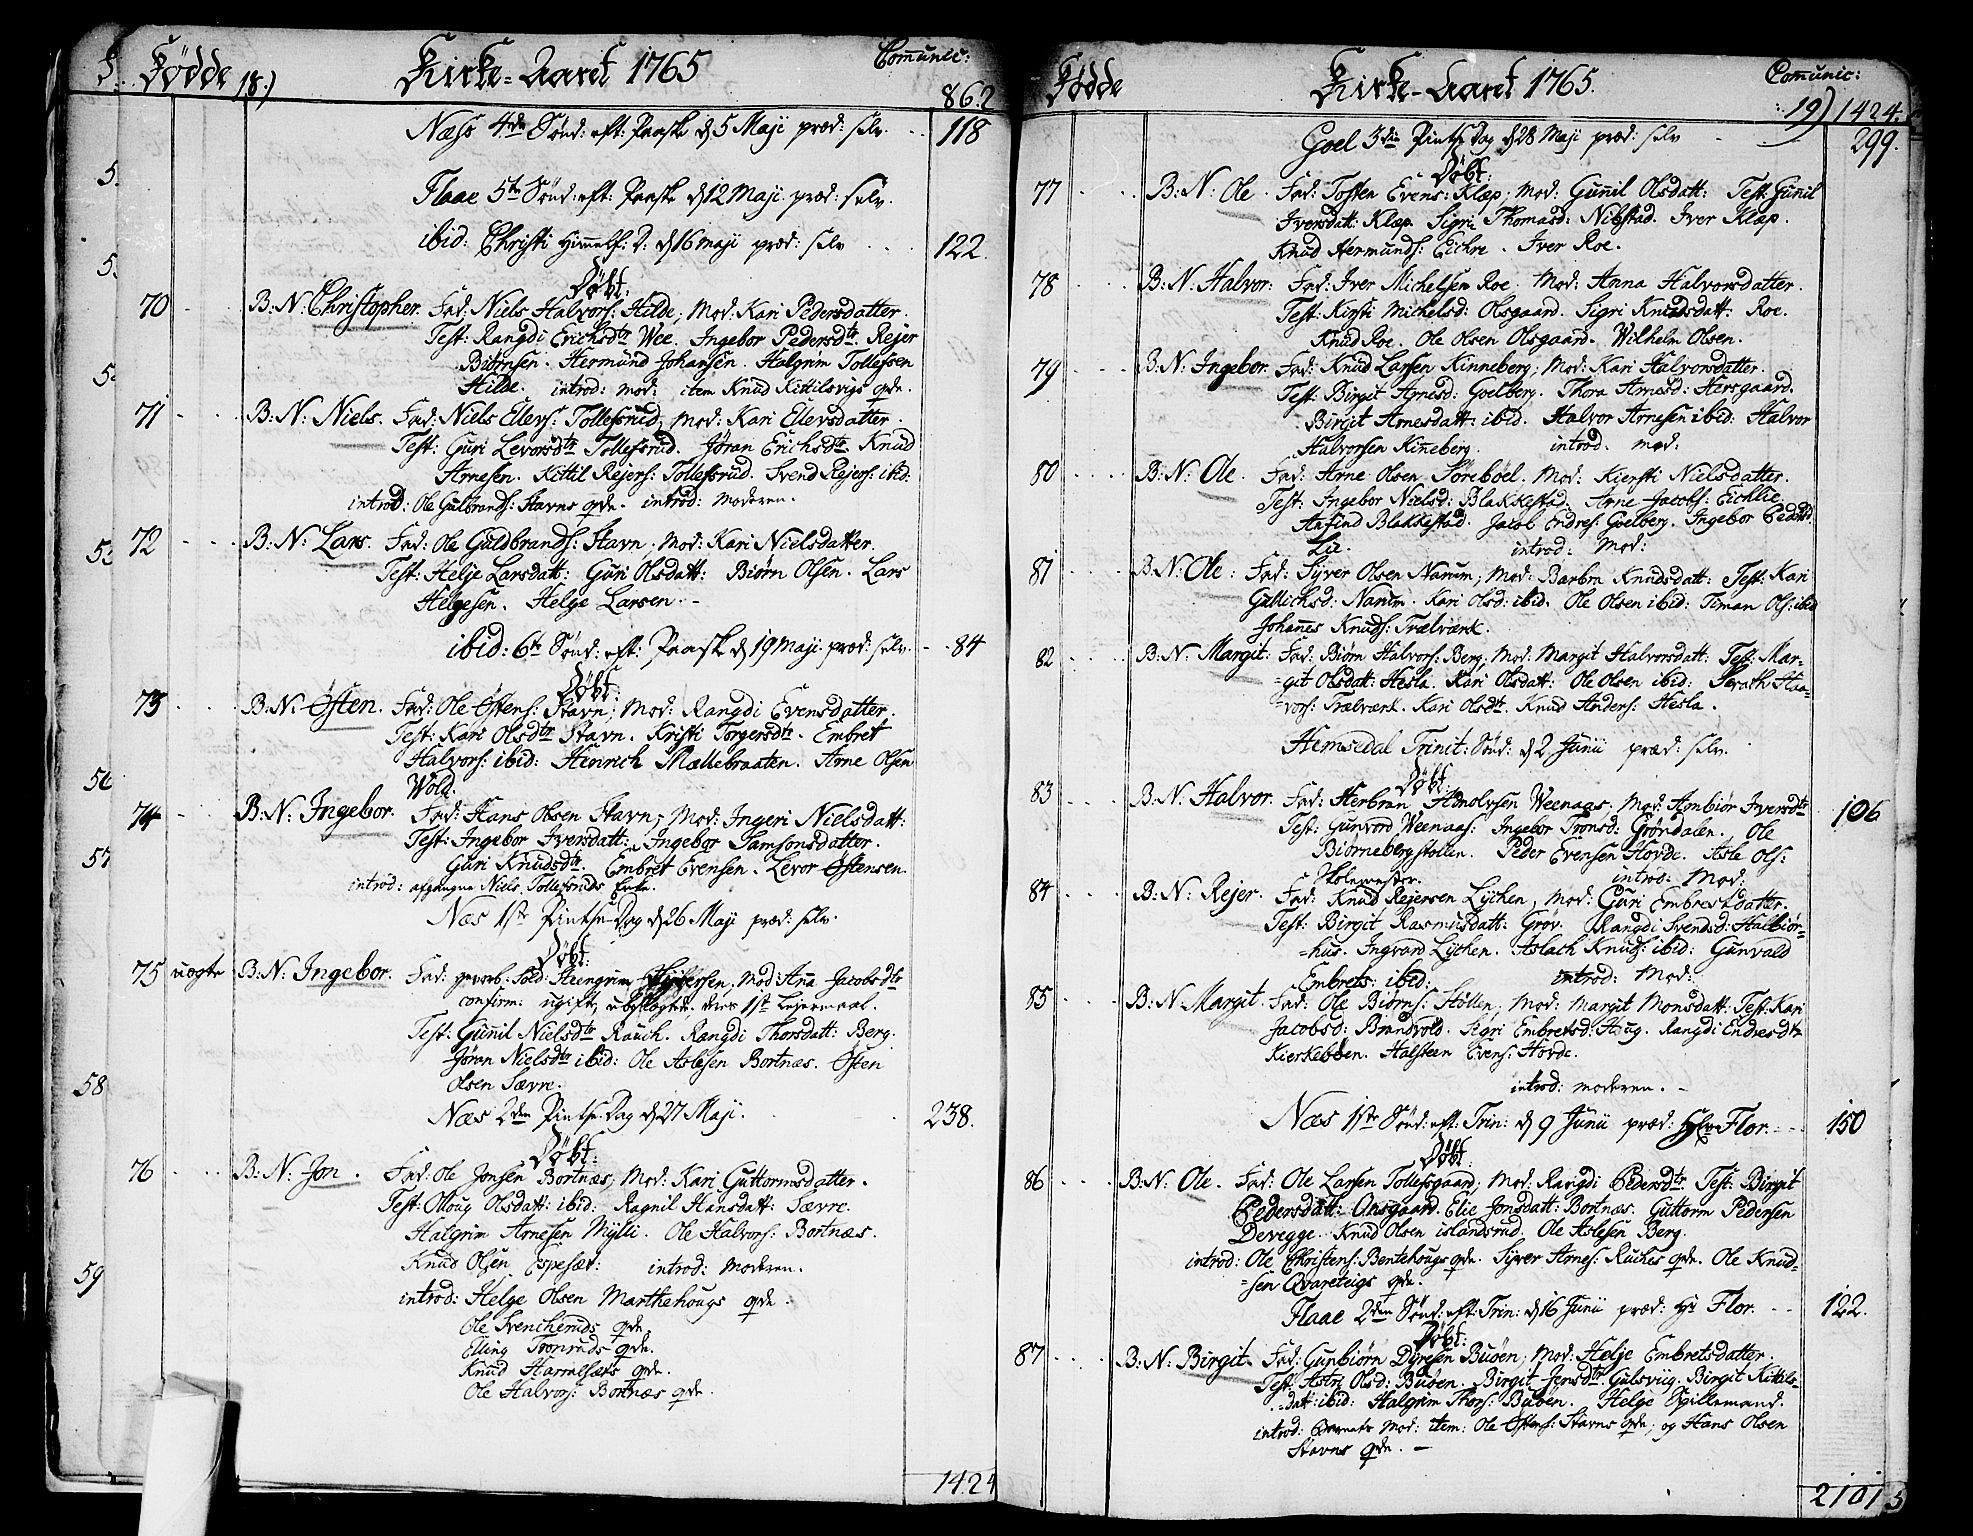 Fødde 18.) Kirke-Aaret 1765 Comunic:
862
Næss 4de Sønd: eft: Paaske d 5 Maji præd: selv. 118
Flaae 5te Sønd: eft: Paaske d 12 Maji præd: selv.
ibid: Christi Himmelf: D: d 16 maji præd: selv 122.
Døbt:
70 B: N: Christopher. Fad: Niels Halvors: Hilde; Mod: Kari Pedersdatter.
Test: Rangdi Erichsdtr Wee. Ingebor Pedersdtr. Rejer
Biørnsen. Hermund Johansen. Halgrim Tollefsen
Hilde. introd: mod: item Knud Kittilsvigs qde.
71 B: N: Niels. Fad: Niels Ellevs: Tollefsrud, Mod: Kari Ellevsdatter.
Test: Guri Levorsdtr Tollefsrud. Jøran Erichsdtr. Knud
Arnesen. Kittil Rejers: Tollefsrud. Svend Rejers: ibid:
introd: Ole Gulbrands: Stavns qde. introd: moderen.
72 B: N: Lars. Fad: Ole Guldbrands: Stavn; Mod: Kari Nielsdatter.
Test: Helje Larsdatt: Guri Olsdatt: Biørn Olsen. Lars
Helgesen. Helge Larsen. -
ibid: 6te Sønd: eft: Paaske d 19 Maji præd: selv. 84
Døbt:
73 B: N: Østen. Fad: Ole Østens: Stavn; Mod: Rangdi Evensdatter.
Test: Kari Olsdtr Stavn. Kristi Torgersdtr. Embret
Halvors: ibid: Henrich Møllebraaten. Arne Olsen
Wold.
74 B: N: Ingebor. Fad: Hans Olsen Stavn; Mod: Ingeri Nielsdatt:
Test: Ingebor Iversdatt: Ingebor Samsonsdatter.
Guri Knudsdtr. Embret Evensen. Levor Østensen.
introd: afgangne Niels Tollefsruds Enke.
Næs 1ste Pintse-Dag d 26 Maji præd: selv.
Døbt:
75 uægte B: N: Ingebor. Fad: gevorb: Sold: Steingrim; Mod: Ana Jacobsdtr
confirm: ugift, 1ste Lejermaal.
Test: Gunil Nielsdtr Rauch. Rangdi Thorsdatt: Berg.
Jøran Nielsdtr ibid: Ole Aslesen Bortnæs. Østen
Olsen Sævre.
Næs 2den Pintse-Dag d 27 Maji. 238.
Døbt:
76 B: N: Jon. Fad: Ole Jonsen Bortnæs; Mod: Kari Guttormsdatter.
Test: Olloug Olsdatt: ibid: Ragnil Hansdatt: Sævre.
Halgrim Arnesen Mylli. Ole Halvors: Bortnæs.
Knud Olsen Espesæt: introd: Moderen.
introd: Helge Olsen Marthehougs qde.
Ole Svencheruds qde.
Elling Tronruds qde.
Knud qde.
Ole Halvors: Bortnæs qde.
1424
Fødde Kirke-Aaret 1765. Comunic:
19) 1424.
Goel 3die Pintse Dag d 28 Maji præd: selv 299.
Døbt:
77 B: N: Ole. Fad: Tosten Evens: Klæp; Mod: Gunil Olsdatt: Test: Gunil
Iversdatt: Klæp. Sigri Thomasd: Nibstad. Iver Klæp.
Knud Hermunds: Eichre. Iver Roe.
78 B: N. Halvor: Fad: Iver Michelsen Roe. Mod: Anna Halvorsdatter.
Test: Kirsti Michelsd: Olsgaard. Sigri Knudsdatt: Roe.
Knud Roe. Ole Olsen Olsgaard. Wilhelm Olsen.
79 B: N. Ingebor. Fad: Knud Larsen Kinneberg; Mod: Kari Halvorsdatter.
Test: Birgit Arnesd: Goelberg. Thora Arnesd: Hersgaard.
Birgit Arnesdatt: ibid. Halvor Arnesen ibid: Halvor
Halvorsen Kineberg. introd: mod:
80 B: N: Ole. Fad: Arne Olsen Sørebøel, Mod: Kiersti Nielsdatter.
Test: Ingebor Nielsd: Blakkestad. Arne Jacobs: Eichlie.
Anfind Blakkestad. Jacob Endres: Goelberg. Ingebor Pedersd
Lie. introd: Mod:
81 B: N: Ole: Fad: Syver Olsen Narum; Mod: Barbra Knudsdatt: Test: Kari
Gullichsd: Narum. Kari Olsd: ibid. Ole Olsen ibid: Timan Ols: ibid
Johannes Knuds: Trælværk.
82 B: N. Margit: Fad: Biørn Halvors: Berg; Mod: Margit Halvorsdatt: Test: Mar=
=git Olsdatt: Hesla. Kari Olsdatt: Ole Olsen ibid: Haa=
=vors: Trælværk. Kari Olsdtr. Knud Anders: Hesla.
Hemsedal Trinit: Sønd: d 2 Junii præd: selv.
Døbt:
83 B: N. Halvor. Fad: Herbran Weenaas, Mod: Ambiør Iversdtr 106
Test: Gunvord Weenaas: Ingebor Tronsd: Grøndalen. Ole
Biørnebergstollen. Peder Evensen Hovde. Asle Ols:
Skolemester. introd: Mod:
84 B: N: Rejer. Fad: Knud Rejersen Lychen, Mod: Guri Embrestdatter.
Test: Birgit Rasmusdatt: Grøv. Rangdi Svendsd: Halbiør=
=hus. Ingvard Lychen. Aslach Knuds: ibid: Gunvald
Embrets: ibid: introd: Mod:
85 B: N: Margit. Fad: Ole Biørns: Støllen; Mod: Margit Monsdatt: Test: Kari
Jacobsd: Brandvold. Sigri Embretsd: Hug. Rangdi Endresdtr
Kierkebøen. Halsteen Evens: Hovde.
introd: moderen. -
Næs 1ste Sønd: eft: Trin: d 9 Junii præd: Hr Flor. 150
Døbt:
86 B: N: Ole. Fad: Ole Larsen Tollefsgaard; Mod: Rangdi Pedersdtr. Test: Birgit
Pedersdatt: Ansgaard. Elie Jonsdatt: Bortnæs. Guttorm Pedersen
Devegge. Knud Olsen islandsrud. Ole Aslesen Berg.
introd: Ole Christens: Bentehougs qde. Syver Arnes: Ruches qde. Ole Knud=
=sen Qvareteigs qde.
Flaae 2den Sønd: eft: Trin: d 16 Junii præd: Hr Flor. 122.
Døbt:
87 B: N: Birgit. Fad: Gunbiørn Dyresen Buøen; Mod: Helje Embretsdatter.
Test: Astri Olsd: Buøen. Birgit Jensdtr Gulsvig. Birgit Kittils=
datt: ibid: Halgrim Thors: Buøen. Helge Spillemand.
introd: Mod: item: Ole Østens: Stavns qde; og Hans Olsen
Stavns qde. -
2101